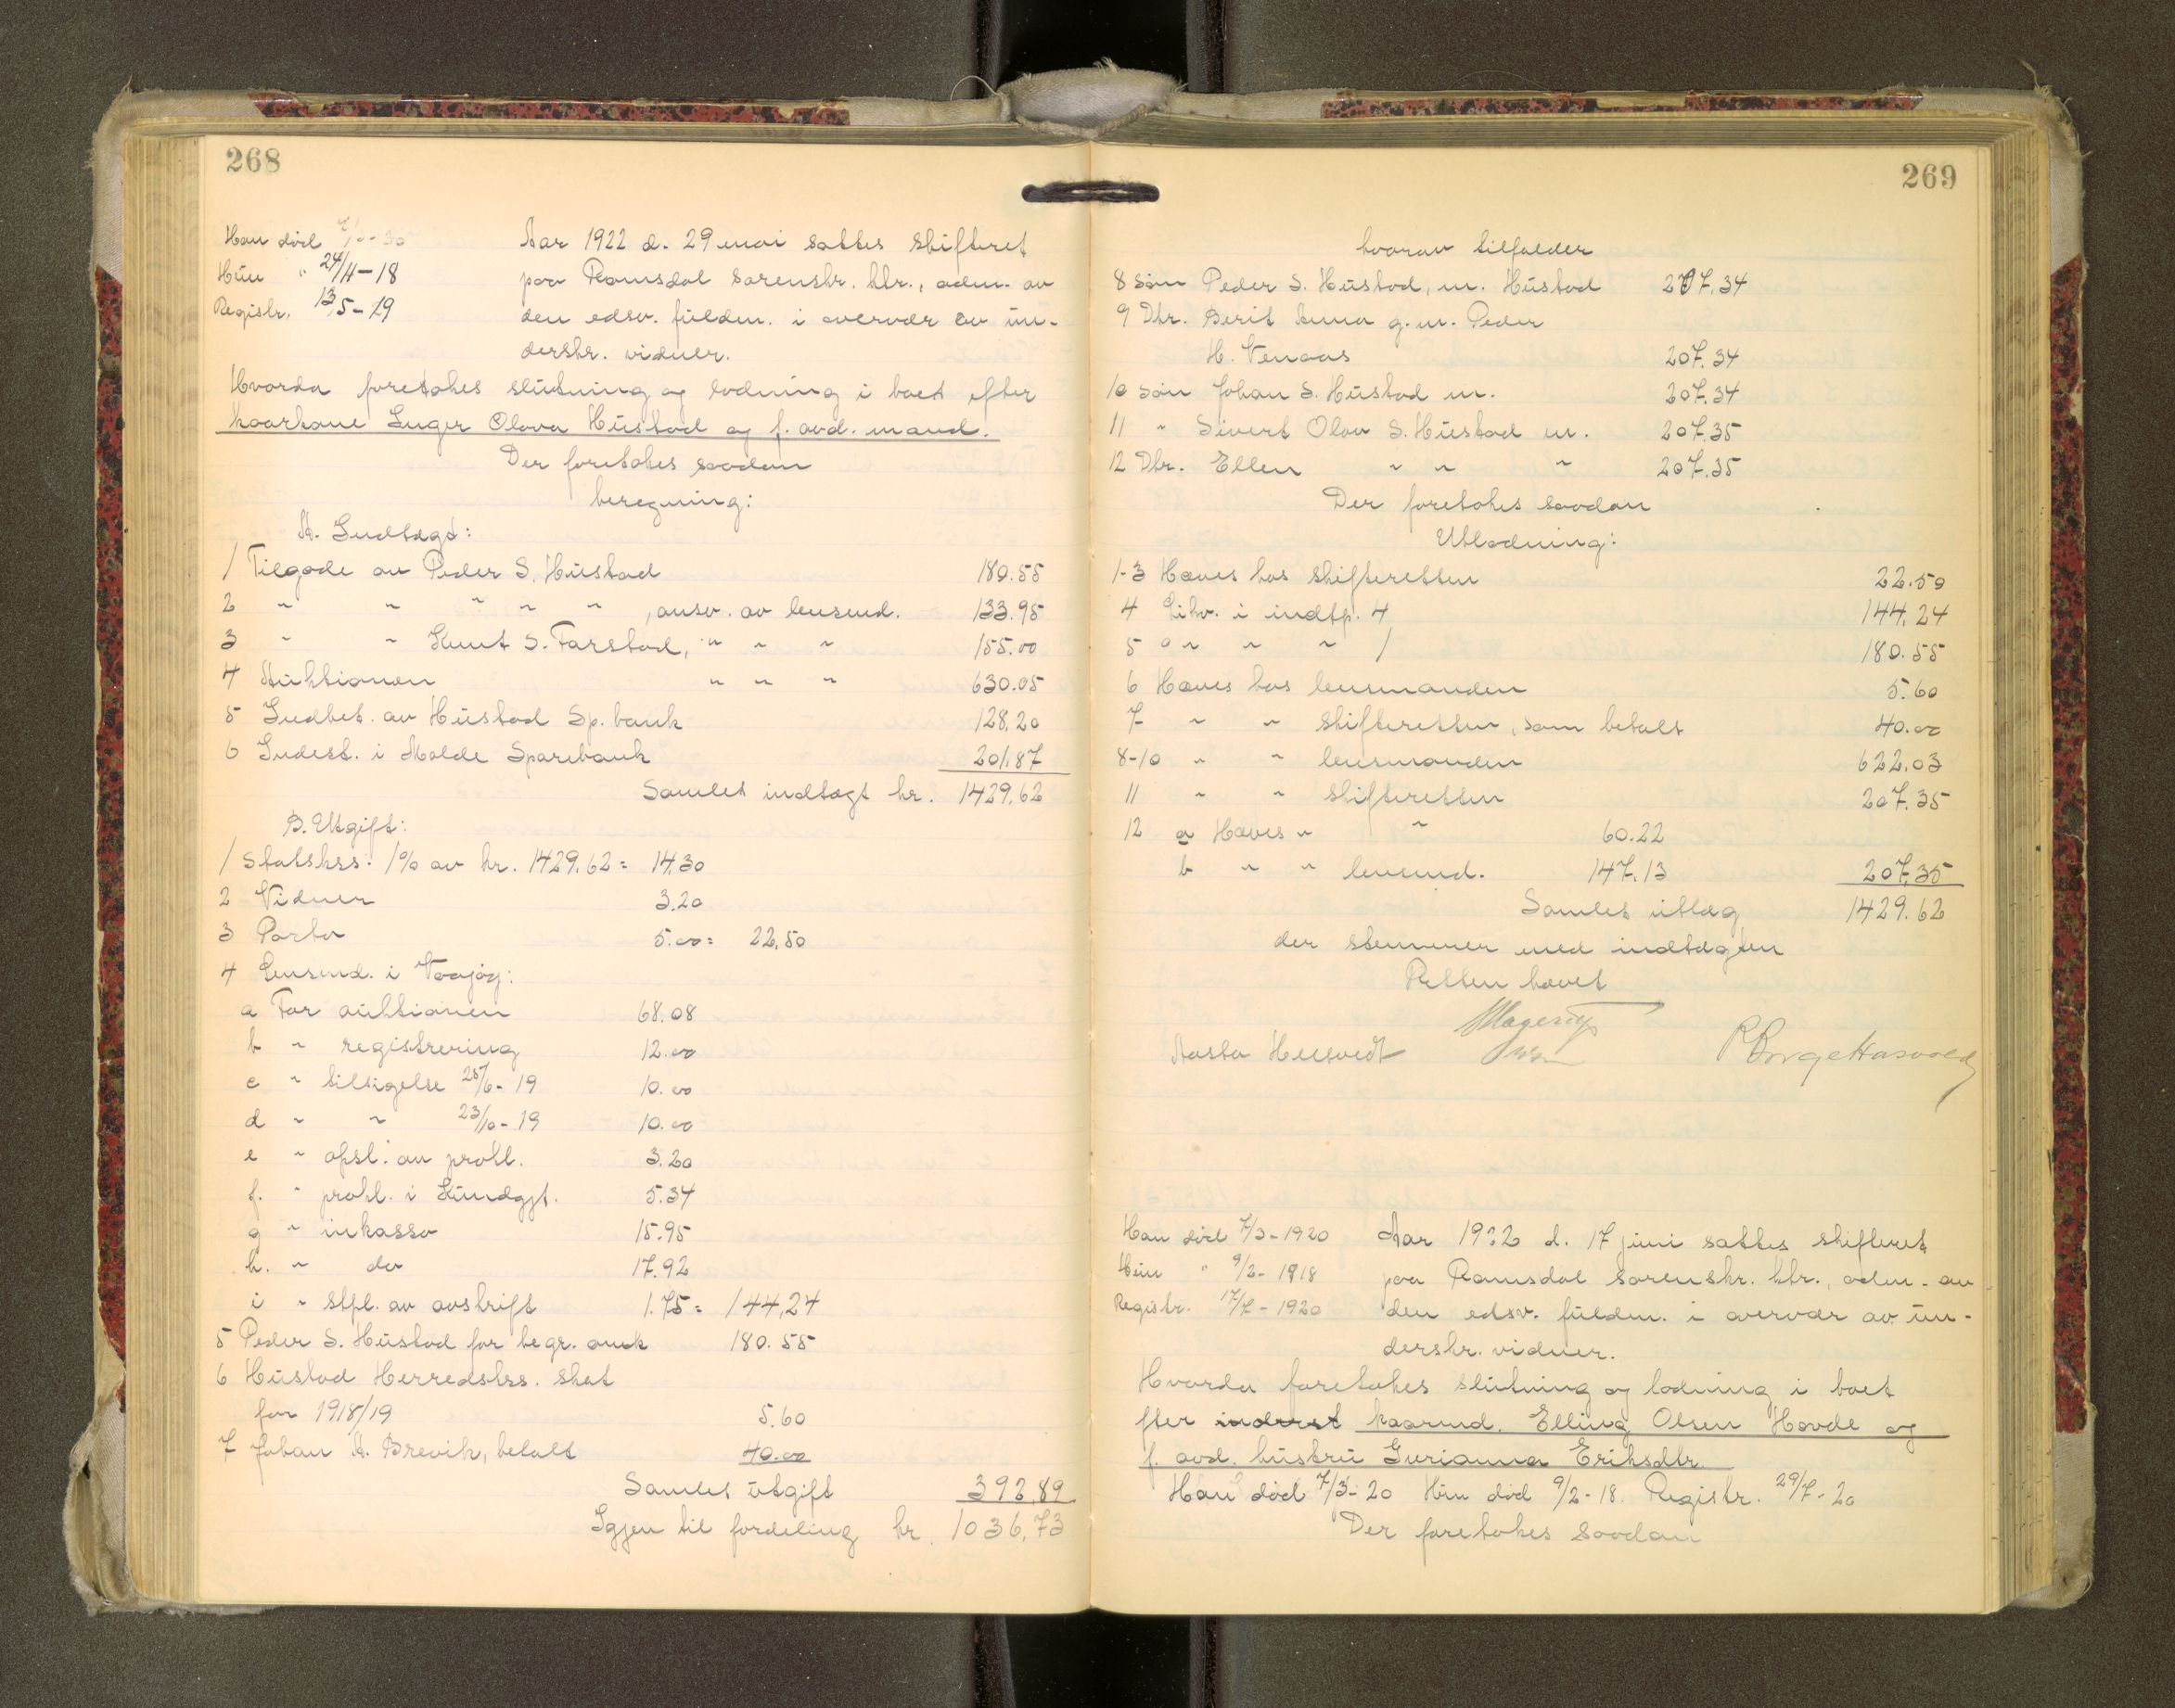 268
Han död 7/6-30
Hun " 24/11-18
Registr. 13/5-19
Aar 1922 d. 29 mai sattes skifteret
paa Romsdal sorenskr. ktr., adm. av
den edsv. fuldm. i overvær av un-
derskr. vidner.
Hvorda foretokes slutning og lodning i boet efter
kaarkone Inger Olava Hustad og f. avd. mand.
Der foretokes saadan
beregning:
A. Indtægt:
1 Tilgode av Peder S. Hustad 180.55
2 " " " " " , ansv. av lensmd. 133.95
3 " " Knut S. Farstad, " " " 155.00
4 Auktionen " " " 630.05
5 Indbet. av Hustad Sp.bank 128.20
6 Indest. i Molde Sparebank 201.87
Samlet indtægt kr. 1429.62
B. Utgift:
1 Statskss. 1% av kr. 1429.62 = 14.30
2 Vidner 3.20
3 Porto 5.00 = 22.50
4 Lensmd. i Vaagøy:
a For auktionen 68.08
b " registrering 12.00
c " tilsigelse 25/6-19 10.00
d " " 23/10-19 10.00
e " opsl. av prokl. 3.20
f. " prokl. i Kundgjt. 5.34
g " inkasso 15.95
h. " do 17.92
i " stpl. av avskrift 1.75 = 144.24
5 Peder S. Hustad for begr. omk 180.55
6 Hustad Herredskss. skat
for 1918/19 5.60
7 Johan A. Brevik, betalt 40.00
Samlet utgift 392.89
Igjen til fordeling kr. 1036.73
269
hvorav tilfalder
8 Søn Peder S. Hustad, m. Hustad 207.34
9 Dtr. Berit Anna g.m. Peder
H. Venaas 207.34
10 Søn Johan S. Hustad m. 207.34
11 " Sivert Olav S. Hustad m. 207.35
12 Dtr. Ellen " " " 207.35
Der foretokes saadan
Utlodning:
1-3 Haves hos skifteretten 22.50
4 Likv. i indtp. 4 144.24
5 " " " 1 180.55
6 Haves hos lensmanden 5.60
7 " " skifteretten, som betalt 40.00
8-10 " " lensmanden 622.03
11 " " skifteretten 207.35
12 a Haves " " 60.22
b " " lensmd. 147.13 207.35
Samlet utlæg 1429.62
der stemmer med indtægten
Retten hævet
Hagerup
Aasta R Borge Hasvold
Han död 7/3-1920
Hun " 9/2-1918
Registr. 17/7-1920
Aar 1922 d. 17 juni sattes skifteret
paa Romsdal sorenskr. ktr., adm. av
den edsv. fuldm. i overvær av un-
derskr. vidner.
Hvorda foretokes slutning og lodning i boet
fter inderst kaarmd. Elling Olsen Hovde og
f. avd. hustru Gurianna Eriksdtr.
Han död 7/3-20 Hun död 9/2-18. Registr. 29/7-20
Der foretokes saadan